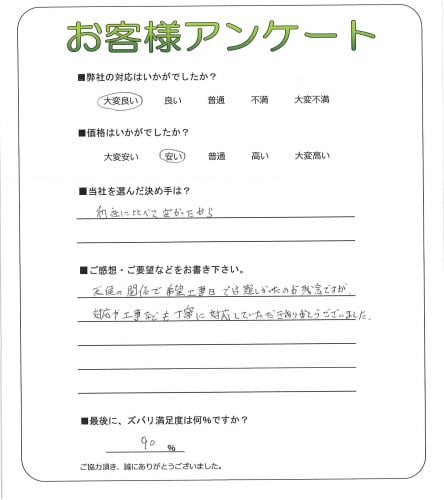 お客様アンケート
■弊社の対応はいかがでしたか？
大変良い 良い 普通 不満 大変不満
■価格はいかがでしたか？
大変安い 安い 普通 高い 大変高い
■当社を選んだ決め手は？
に比べて安かったから
■ご感想・ご要望などをお書き下さい。
天候の関係で希望工事日では難しかったのが残念ですが、
対応や工事なども丁寧に対応していただきありがとうございました。
■最後に、ズバリ満足度は何％ですか？
90 %
ご協力頂き、誠にありがとうございました。